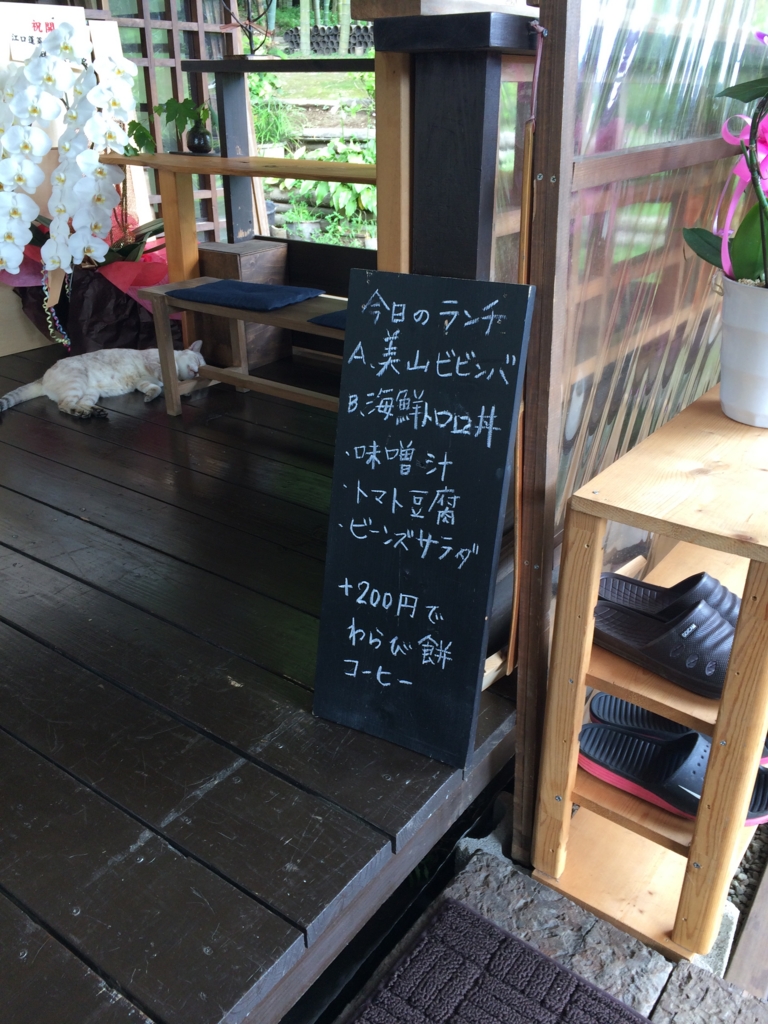 祝開
江口蓮
今日のランチ
A、美山ビビンバ
B、海鮮トロロ丼
・味噌汁
・トマト豆腐
・ビーンズサラダ
+200円で
わらび餅
コーヒー